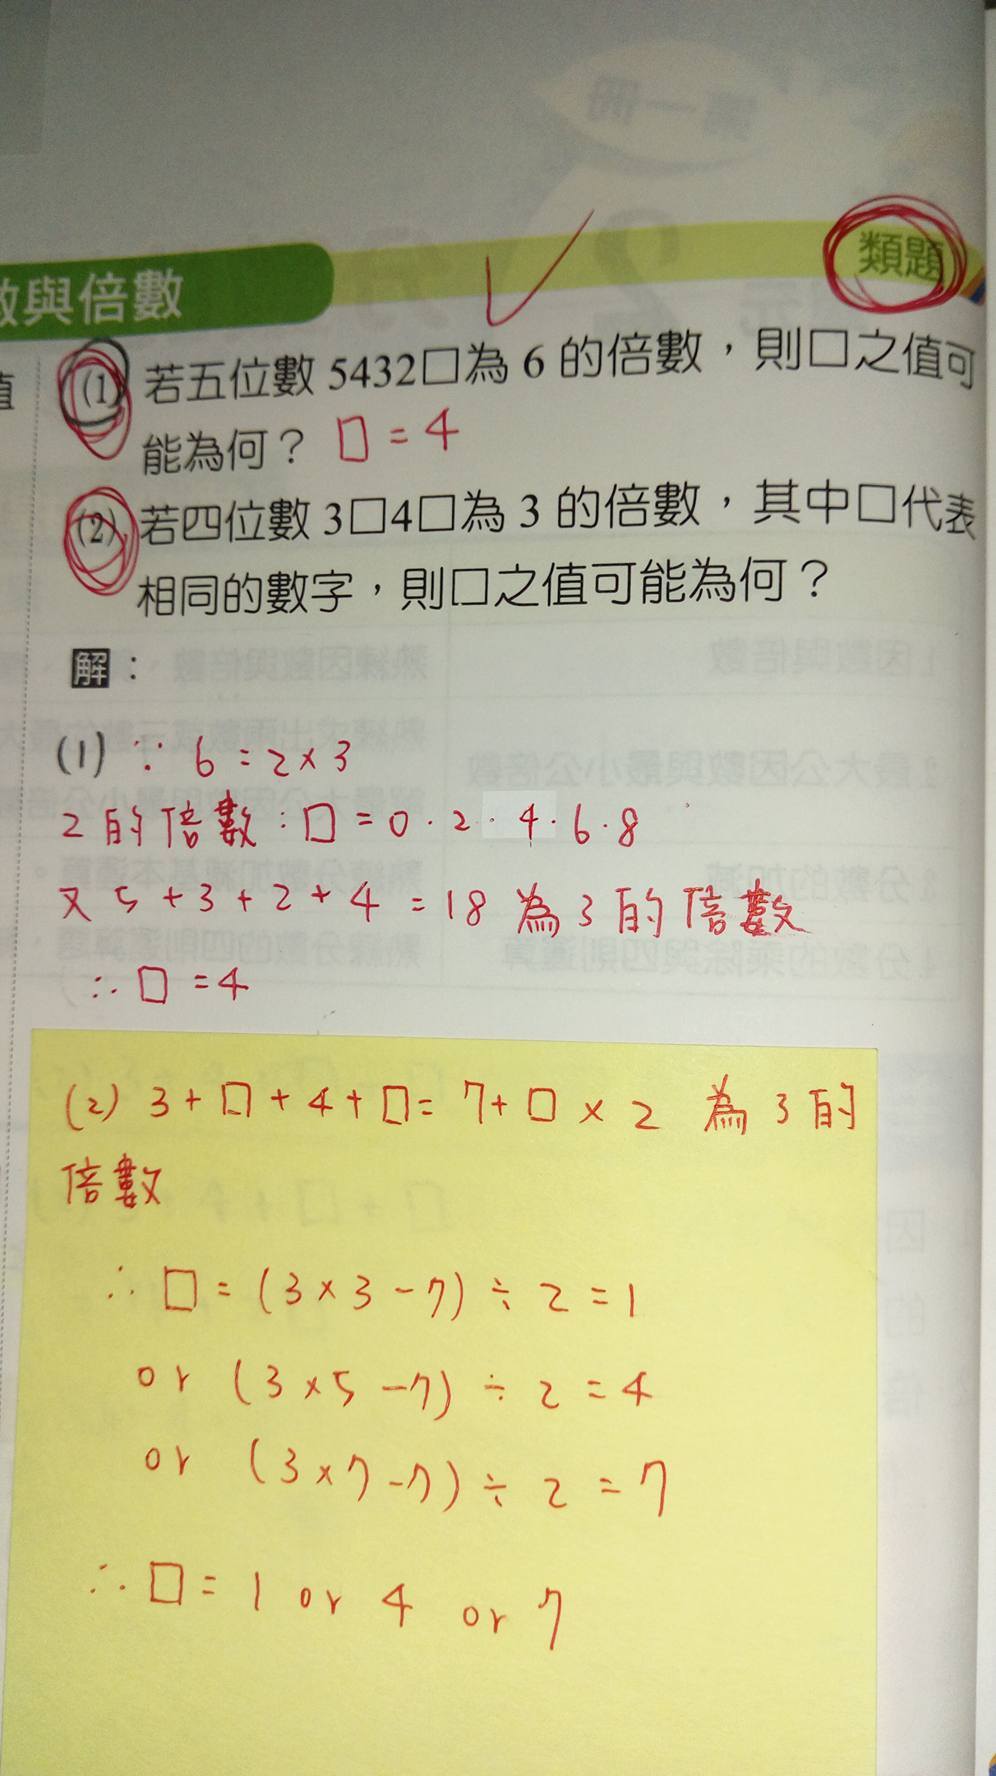 第一冊
數與倍數
類題
值
(1) 若五位數 5432□為 6 的倍數，則□之值可
能為何？ □=4
(2) 若四位數 3□4□為 3 的倍數，其中□代表
相同的數字，則□之值可能為何？
解：
(1) ∵ 6=2×3
2的倍數:□=0.2.4.6.8
又 5+3+2+4=18 為3的倍數
∴□=4
(2) 3+□+4+□=7+□×2 為3的
倍數
∴□=(3×3-7)÷2=1
or (3×5-7)÷2=4
or (3×7-7)÷2=7
∴□=1 or 4 or 7